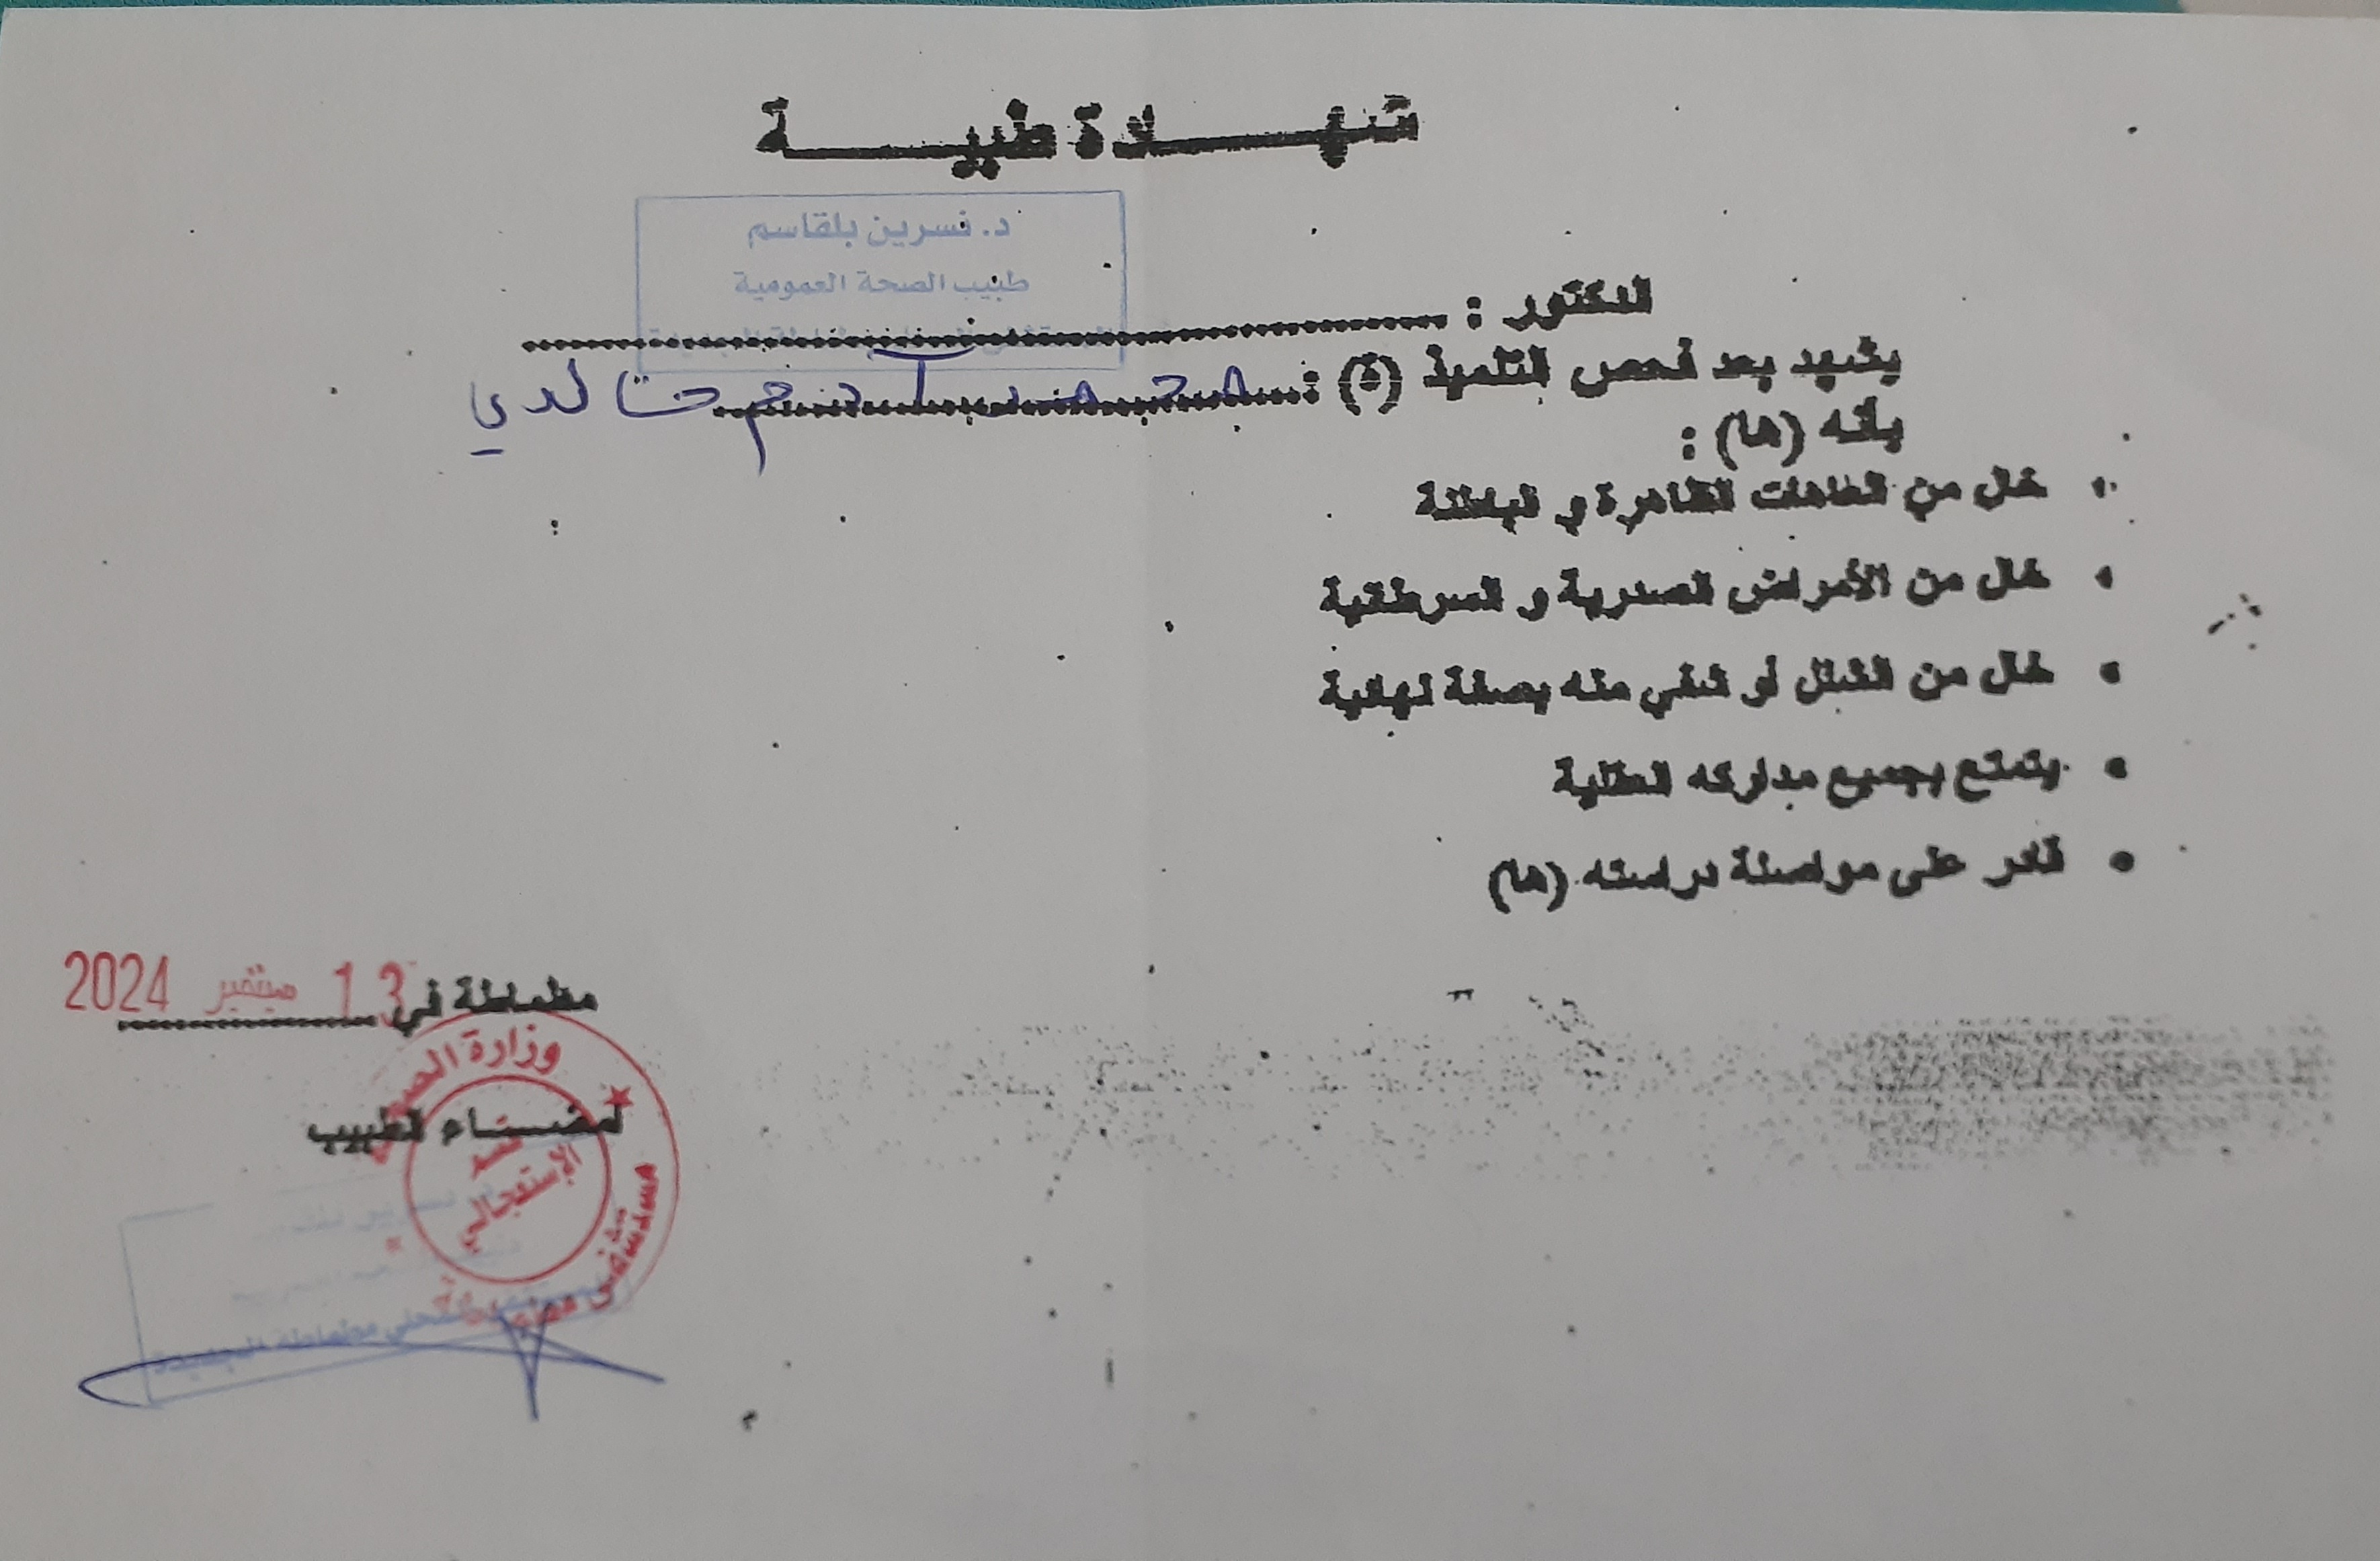 شهادة طبية
د. نسرين بلقاسم
طبيب الصحة العمومية
الدكتور :
يشهد بعد فحص التلميذ (ة) : محمد آدم خالدي
بأنه (ها) :
• خال من العاهات الظاهرة و الباطنة
• خال من الأمراض الصدرية و السرطانية
• خال من الشلل أو شفي منه بصفة نهائية
• يتمتع بجميع مداركه العقلية
• قادر على مواصلة دراسته (ها)
مطماطة في 13 سبتمبر 2024
وزارة الصحة
إمضاء الطبيب
قسم الإستعجالي
مستشفى مطماطة
المحلي مطماطة الجديدة